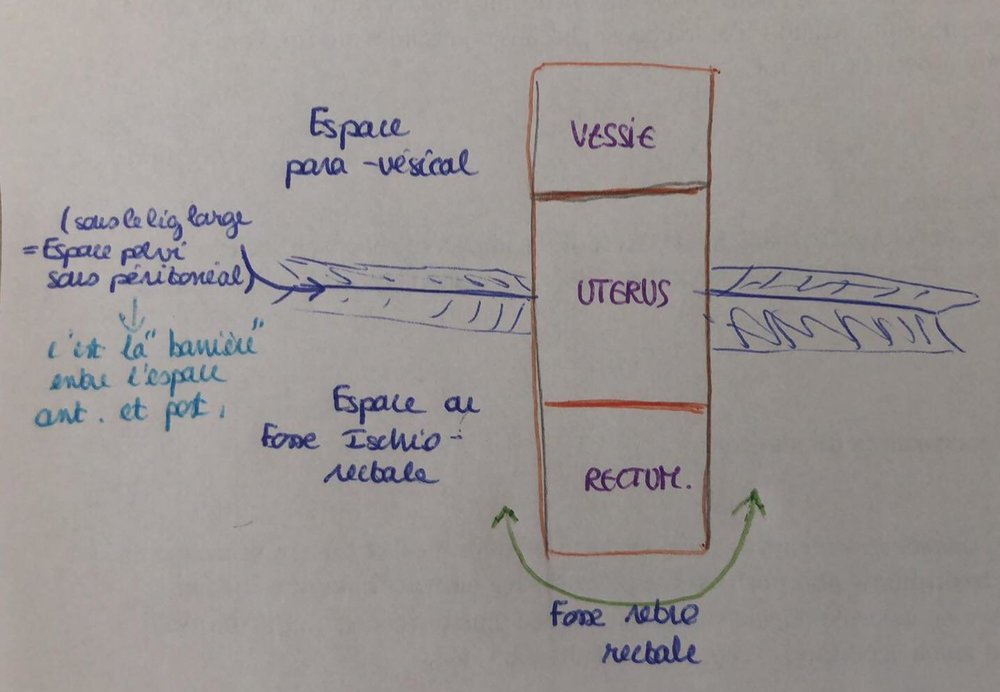 Espace
para-vésical
VESSIE
(sous le lig large
= Espace pelvi
sous péritonéal)
c'est la "barrière"
entre l'espace
ant. et post.
UTERUS
Espace ou
Fosse Ischio-
rectale
RECTUM.
Fosse retro
rectale